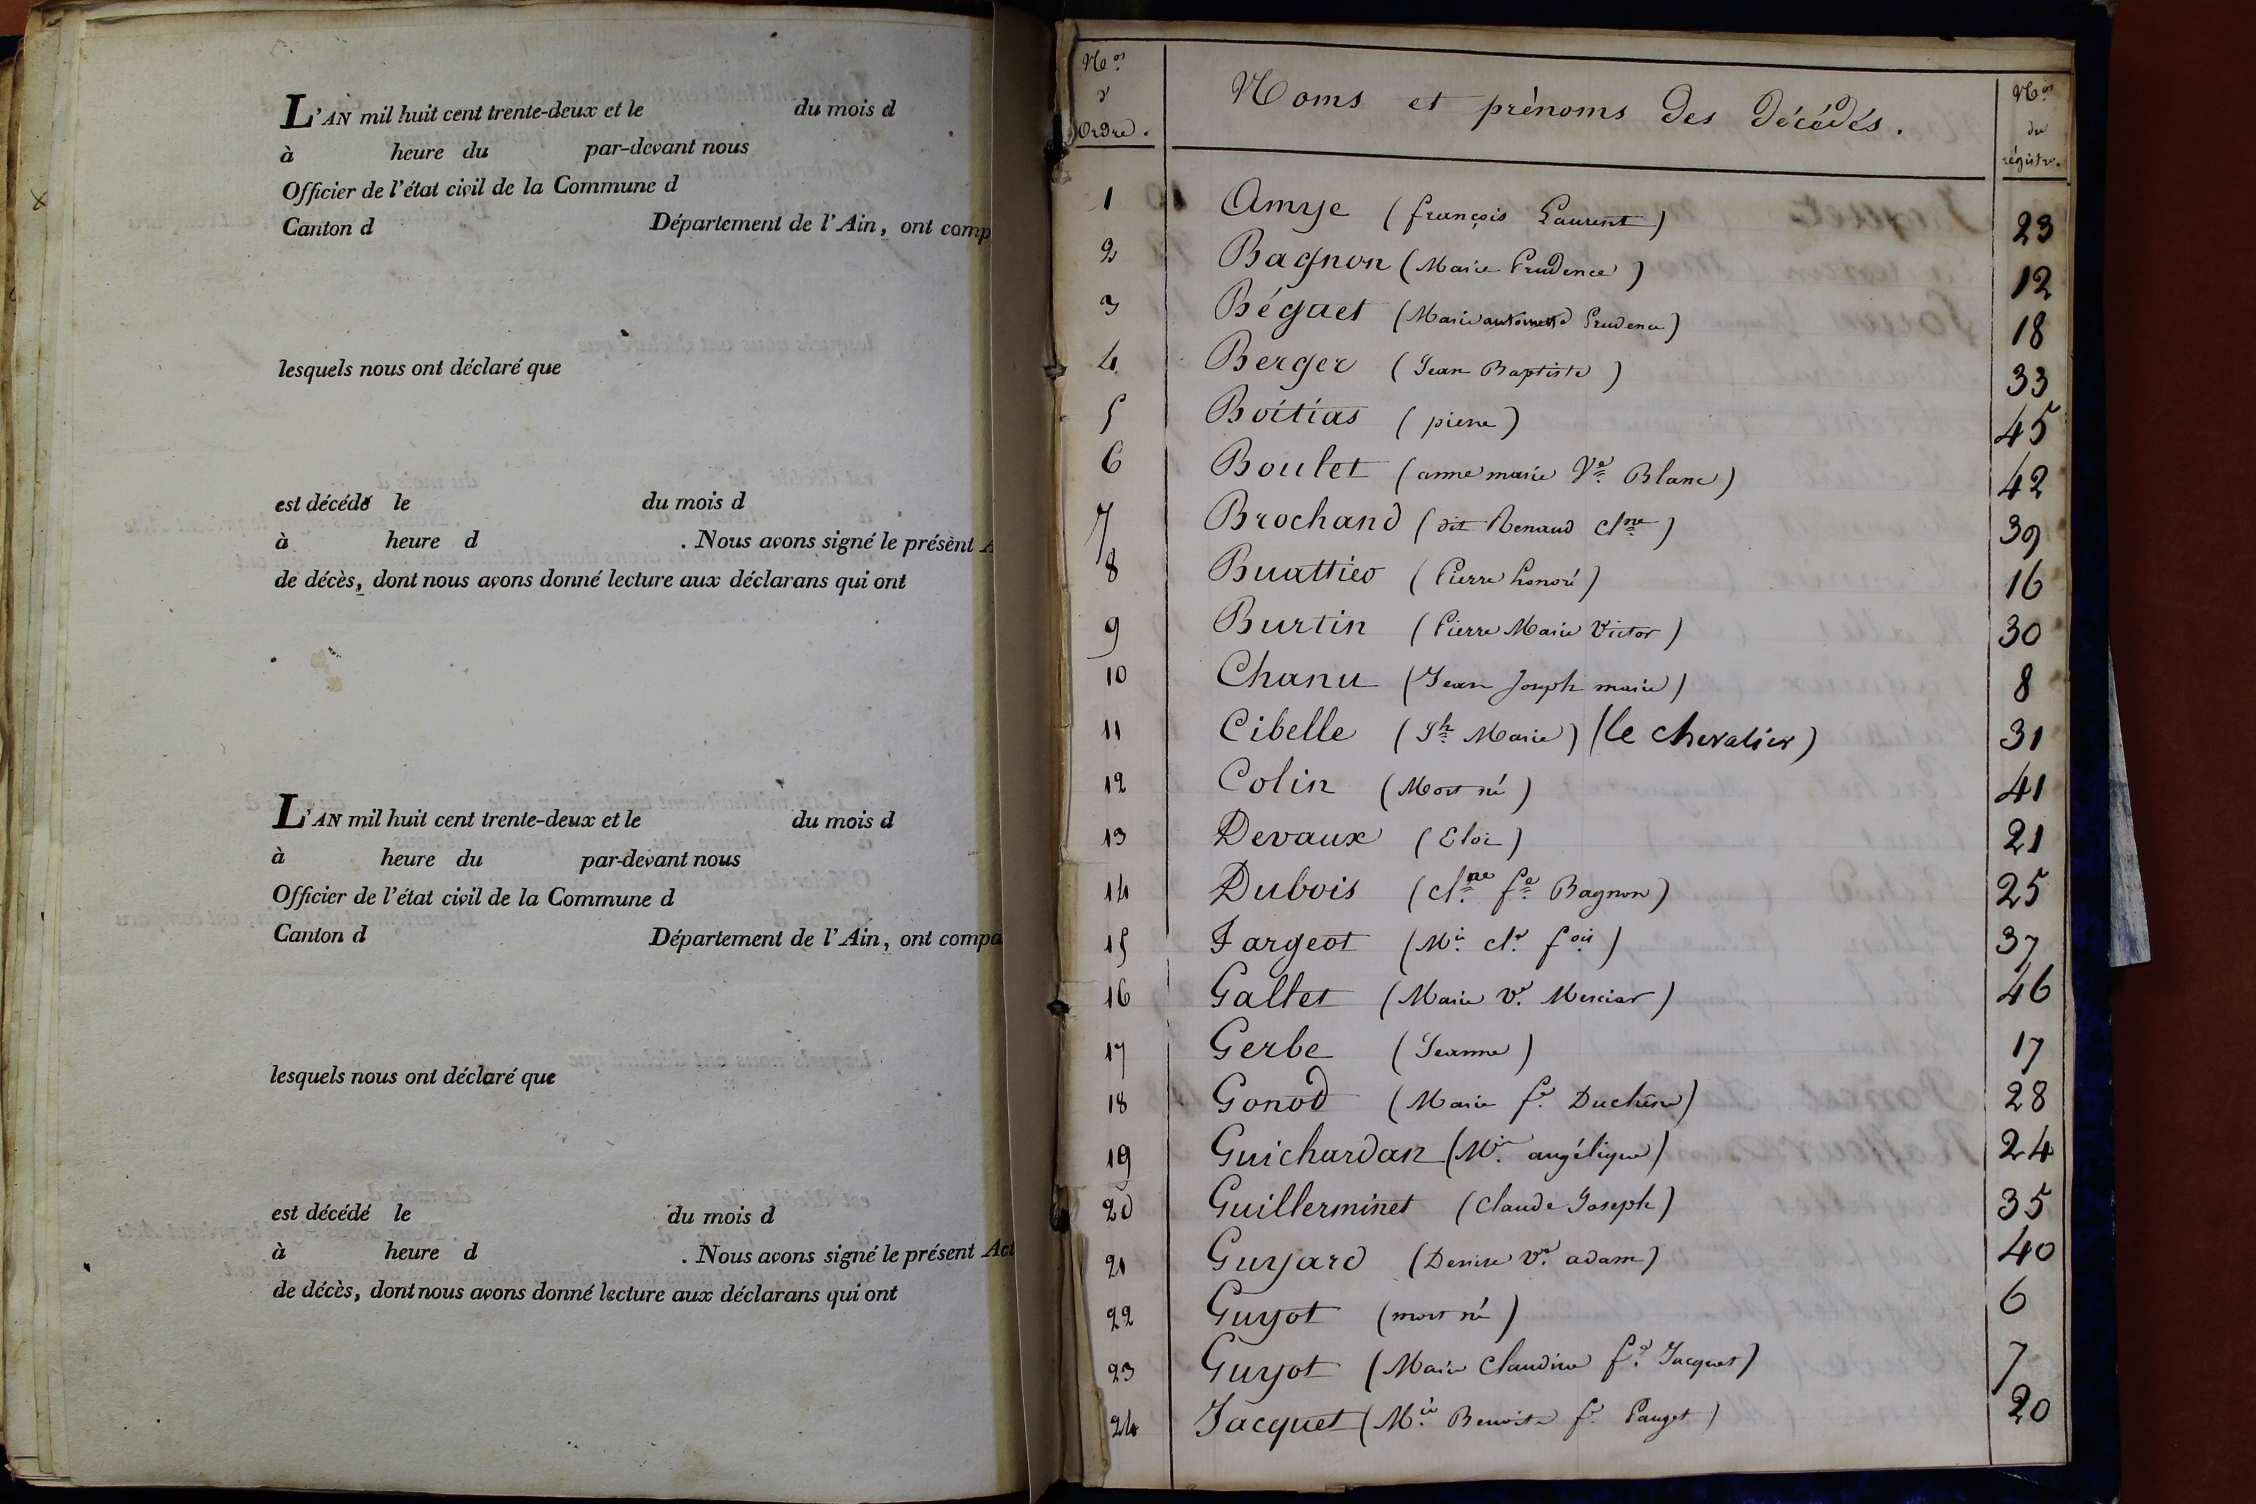 L'AN mil huit cent trente-deux et le du mois d
à heure du par-devant nous
Officier de l'état civil de la Commune d
Canton d Département de l'Ain, ont comp
lesquels nous ont déclaré que
est décédé le du mois d
à heure d . Nous avons signé le présent A
de décès, dont nous avons donné lecture aux déclarans qui ont
L'AN mil huit cent trente-deux et le du mois d
à heure du par-devant nous
Officier de l'état civil de la Commune d
Canton d Département de l'Ain, ont compa
lesquels nous ont déclaré que
est décédé le du mois d
à heure d . Nous avons signé le présent Act
de décès, dont nous avons donné lecture aux déclarans qui ont
Nos d'Ordre. Noms et prénoms des Décédés. Nos du régistre.
1 Amye (françois Laurent) 23
2 Bagnon (Marie Prudence) 12
3 Béguet (Marie antoinette Prudence) 18
4 Berger (Jean Baptiste) 33
5 Boitias (pierre) 45
6 Boulet (anne marie Ve Blanc) 42
7 Brochand (dit Renaud clne) 39
8 Buattier (Pierre honoré) 16
9 Burtin (Pierre Marie Victor) 30
10 Chanu (Jean Joseph marie) 8
11 Cibelle (Jh Marie) (le chevalier) 31
12 Colin (Mort né) 41
13 Devaux (Eloi) 21
14 Dubois (clne fe Bagnon) 25
15 Fargeot (Mie cle fois) 37
16 Gallet (Marie ve Mercier) 46
17 Gerbe (Jeanne) 17
18 Gonod (Marie fe Duchêne) 28
19 Guichardan (Mie angélique) 24
20 Guillerminet (Claude Joseph) 35
21 Guyard (Denise ve adam) 40
22 Guyot (mort né) 6
23 Guyot (Marie Claudine fe Jacquet) 7
24 Jacquet (Mie Benoite fe Pauget) 20